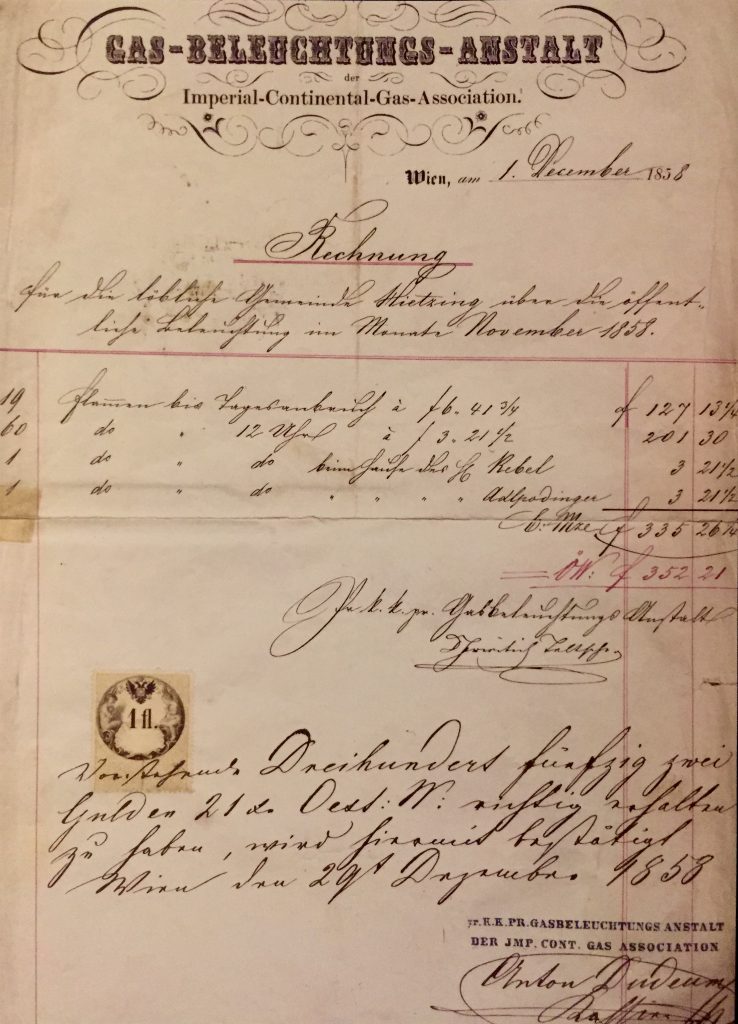 GAS-BELEUCHTUNGS-ANSTALT
der
Imperial-Continental-Gas-Association.
Wien, am 1. December 1858
Rechnung
für die löbliche Gemeinde Hietzing über die öffent-
liche Beleuchtung im Monate November 1858.
19 Flammen bis Tagesanbruch à f 6. 41 3/4 f 127 13 1/4
60 do " 12 Uhr à f 3. 21 1/2 201 30
1 do " do beim Hause des H Rebel 3 21 1/2
1 do " do " " " " Adlpodinger 3 21 1/2
C: Mze f 335 26 1/4
ÖW: f 352 21
Pr k. k. pr. Gasbeleuchtungs Anstalt
1 fl.
Vorstehende Dreihundert fünfzig zwei
Gulden 21 x Oest: W: richtig erhalten
zu haben, wird hiermit bestätigt
Wien den 29t Dezember 1858
pr. K.K.PR.GASBELEUCHTUNGS ANSTALT
DER JMP. CONT. GAS ASSOCIATION
Anton